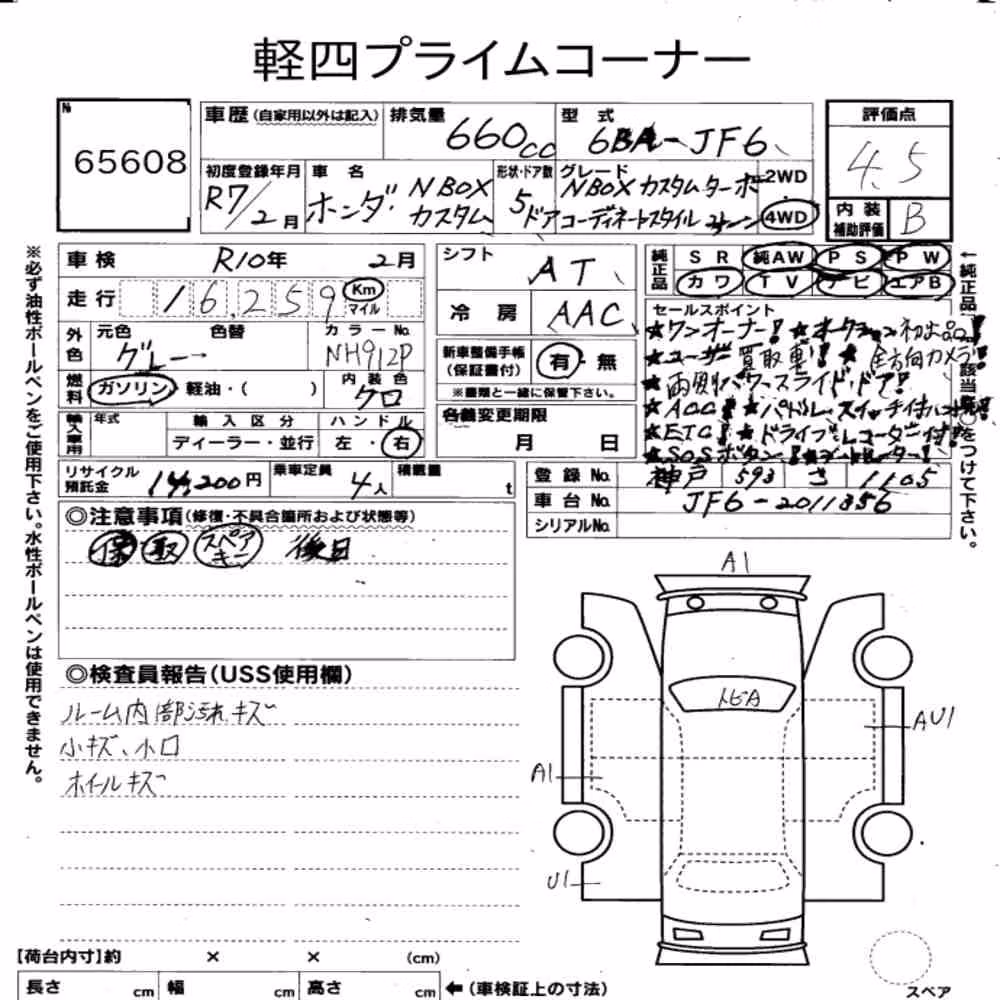 軽四プライムコーナー
№ 65608
車歴 (自家用以外は記入)
排気量 660cc
型式 6BA-JF6
評価点 4.5
初度登録年月 R7/2月
車名 ホンダ NBOX カスタム
形状・ドア数 5ドア
グレード NBOXカスタムターボ コーディネートスタイル
2WD
4WD
内装補助評価 B
車検 R10年 2月
シフト AT
純正品 SR 純AW PS PW
カワ TV ナビ エアB
走行 16,259 Km マイル
冷房 AAC
セールスポイント
★ワンオーナー! ★オークション初出品!
★ユーザー買取車! ★全方向カメラ!
★両側パワースライドドア!
★ACC! ★パドルスイッチ付
★ETC! ★ドライブレコーダー付!
★SOSボタン!
外色 元色 グレー 色替 カラーNo. NH912P
新車整備手帳(保証書付) 有・無
※書類と一緒に保管下さい。
燃料 ガソリン 軽油・( ) 内装色 クロ
輸入車用 年式 輸入区分 ディーラー・並行 ハンドル 左・右
各種変更期限 月 日
リサイクル預託金 14,200円
乗車定員 4人
積載量 t
登録No. 神戸 593 さ 1105
車台No. JF6-2011356
シリアルNo.
◎注意事項(修復・不具合箇所および状態等)
保 取 スペアキー 後日
◎検査員報告(USS使用欄)
ルーム内部汚れキズ
小キズ、小凹
ホイールキズ
A1
トビA
AU1
A1
U1
スペア
【荷台内寸】約 × × (cm)
長さ cm 幅 cm 高さ cm ←(車検証上の寸法)
※必ず油性ボールペンをご使用下さい。水性ボールペンは使用できません。
←純正品該当に○をつけて下さい。